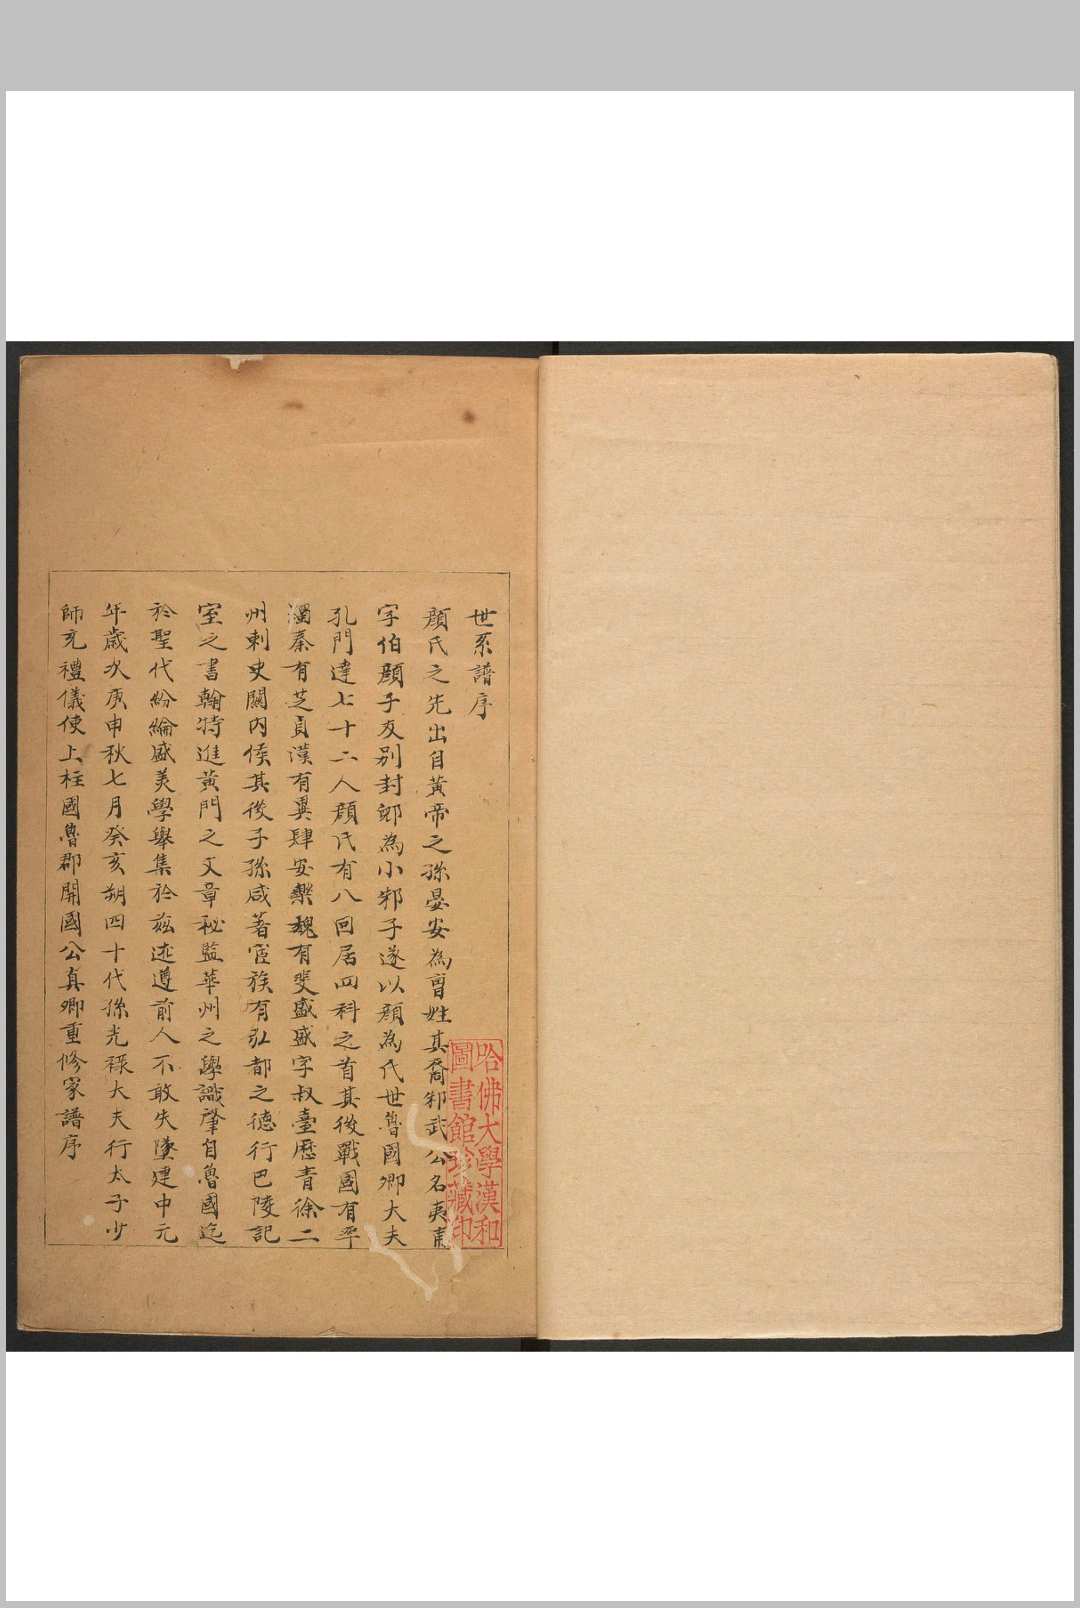 世系譜序
顔氏之先出自黃帝之孫晏安為曹姓其裔邾武公名夷甫
字伯顔子友别封郳為小邾子遂以顔為氏世魯國卿大夫
孔門達七十二人顔氏有八回居四科之首其後戰國有率
濁秦有芝貞漢有異肆安樂魏有斐盛盛字叔臺歷青徐二
州刺史關内侯其後子孫咸著宦族有弘都之德行巴陵記
室之書翰特進黃門之文章秘監華州之學識肇自魯國迄
於聖代紛綸盛美學舉集於茲述遵前人不敢失墜建中元
年歲次庚申秋七月癸亥朔四十代孫光祿大夫行太子少
師充禮儀使上柱國魯郡開國公真卿重修家譜序
哈佛大學漢和
圖書館珍藏印